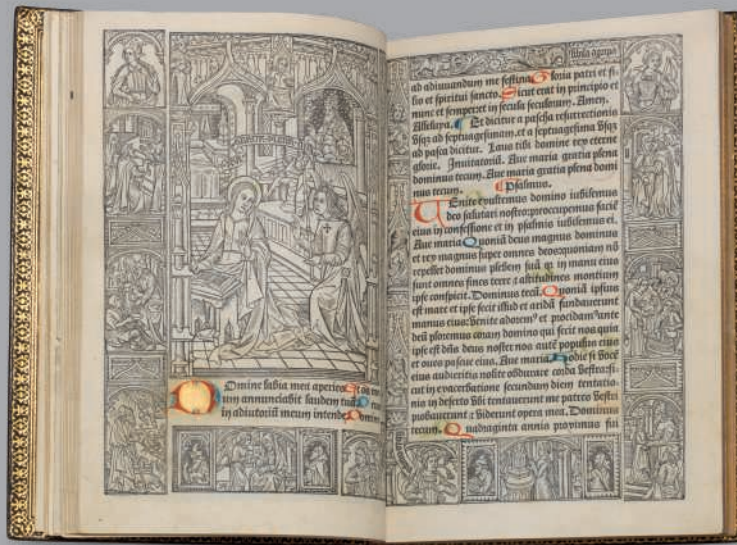 Domine labia mea aperies Et os me
um annunciabit laudem tuã De
in adiutoriũ meum intende Domin
sibila agripa
ad adiuuandum me festina Gloria patri et fi
lio et spiritui sancto. Sicut erat in principio et
nunc et semper: et in secula seculorum. Amen.
Alleluya. Et dicitur a pascha resurrectionis
vsqꝫ ad septuagesimam. et a septuagesima vsqꝫ
ad pasca dicitur. Laus tibi domine rex eterne
glorie. Inuitatoriũ. Aue maria gratia plena
dominus tecum. Aue maria gratia plena domi
nus tecum. Psalmus.
Uenite exultemus domino iubilemus
deo salutari nostro: preoccupemus faciẽ
eius in confessione et in psalmis iubilemus ei.
Aue maria Quoniã deus magnus dominus
et rex magnus super omnes deos: quoniam nõ
repellet dominus plebem suã qꝛ in manu eius
sunt omnes fines terre ⁊ altitudines montium
ipse conspicit. Dominus tecũ. Quoniã ipsius
est mare et ipse fecit illud et aridã fundauerunt
manus eius: venite adoremꝰ et procidamꝰ ante
deũ ploremus coram domino qui fecit nos quia
ipse est dñs deus noster nos autẽ populus eius
et oues pascue eius. Aue maria Hodie si vocẽ
eius audieritis nolite obdurare corda vestra: si
cut in exacerbatione secundum diem tentatio
nis in deserto vbi tentauerunt me patres vestri
probauerunt ⁊ viderunt opera mea. Dominus
tecum. Quadraginta annis proximus fui